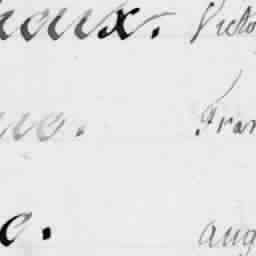 haux. Victo
ue. Fran
e. aug